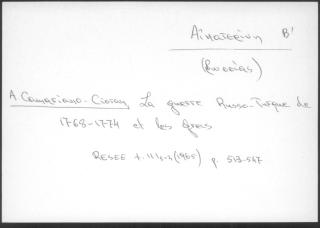 Αικατερίνη Β'
(Ρωσσίας)
A. Camariano-Cioran La guerre Russo-Turque de
1768-1774 et les Grecs
RESEE t. III 3-4 (1965) p. 513-547